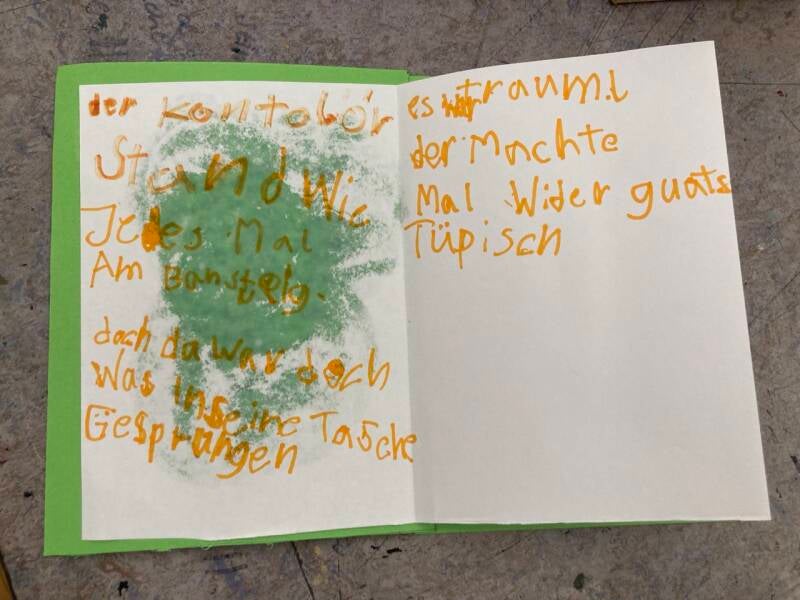 der Kontolör
Stand Wie
Jedes Mal
Am Bansteig.
doch da war doch
Was in seine Tasche
Gesprungen
es war traum.l
der Machte
Mal Wider guats
Tüpisch